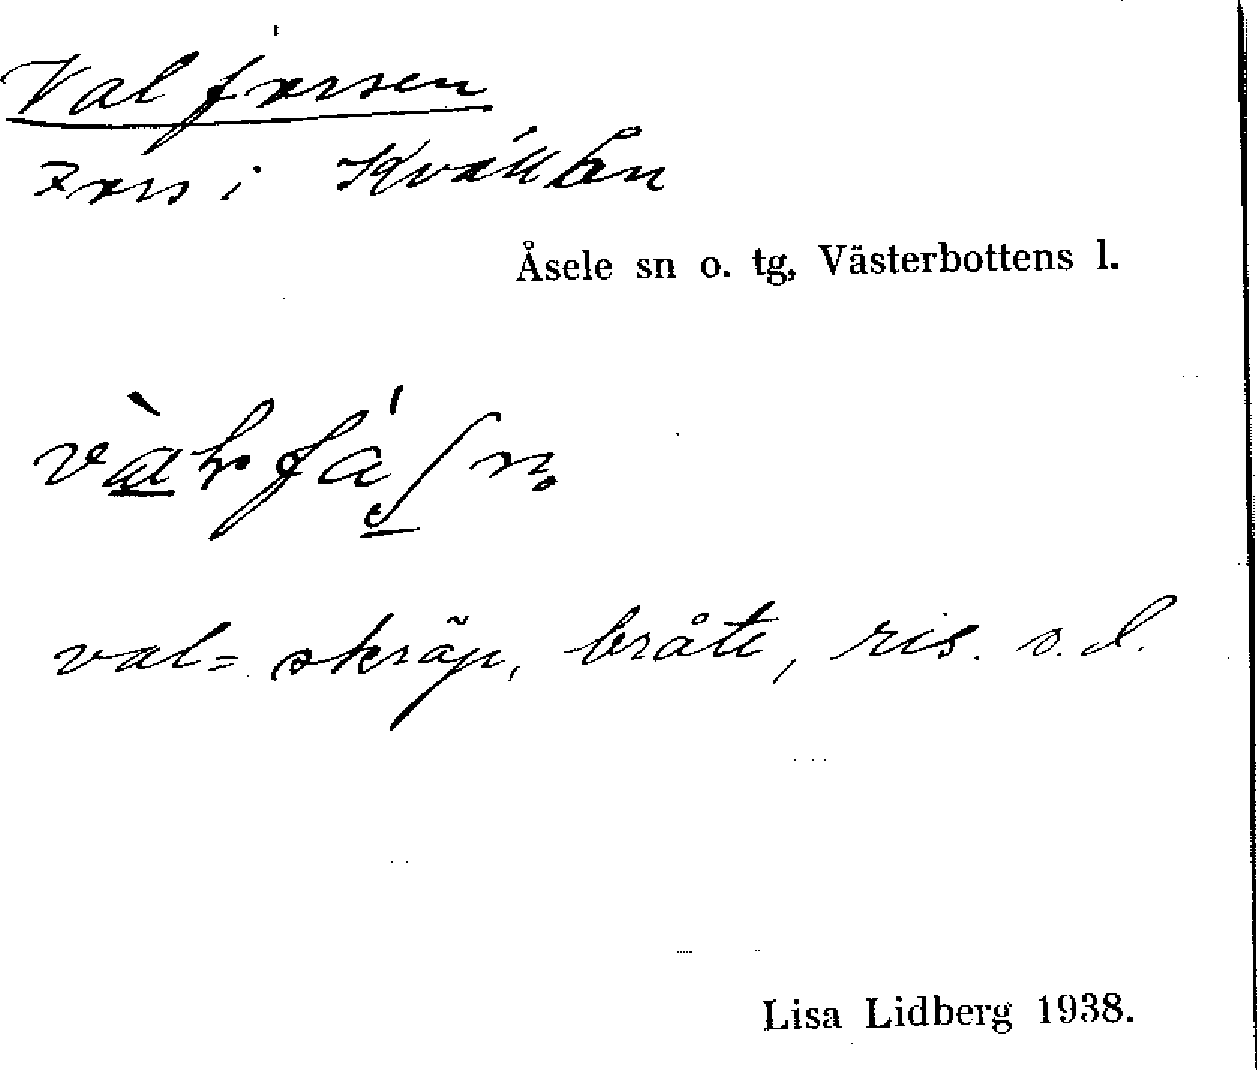 Valforsen
Fors i Kvällån
Åsele sn o. tg, Västerbottens l.
val = skräp, bråte, ris. o. d.
Lisa Lidberg 1938.